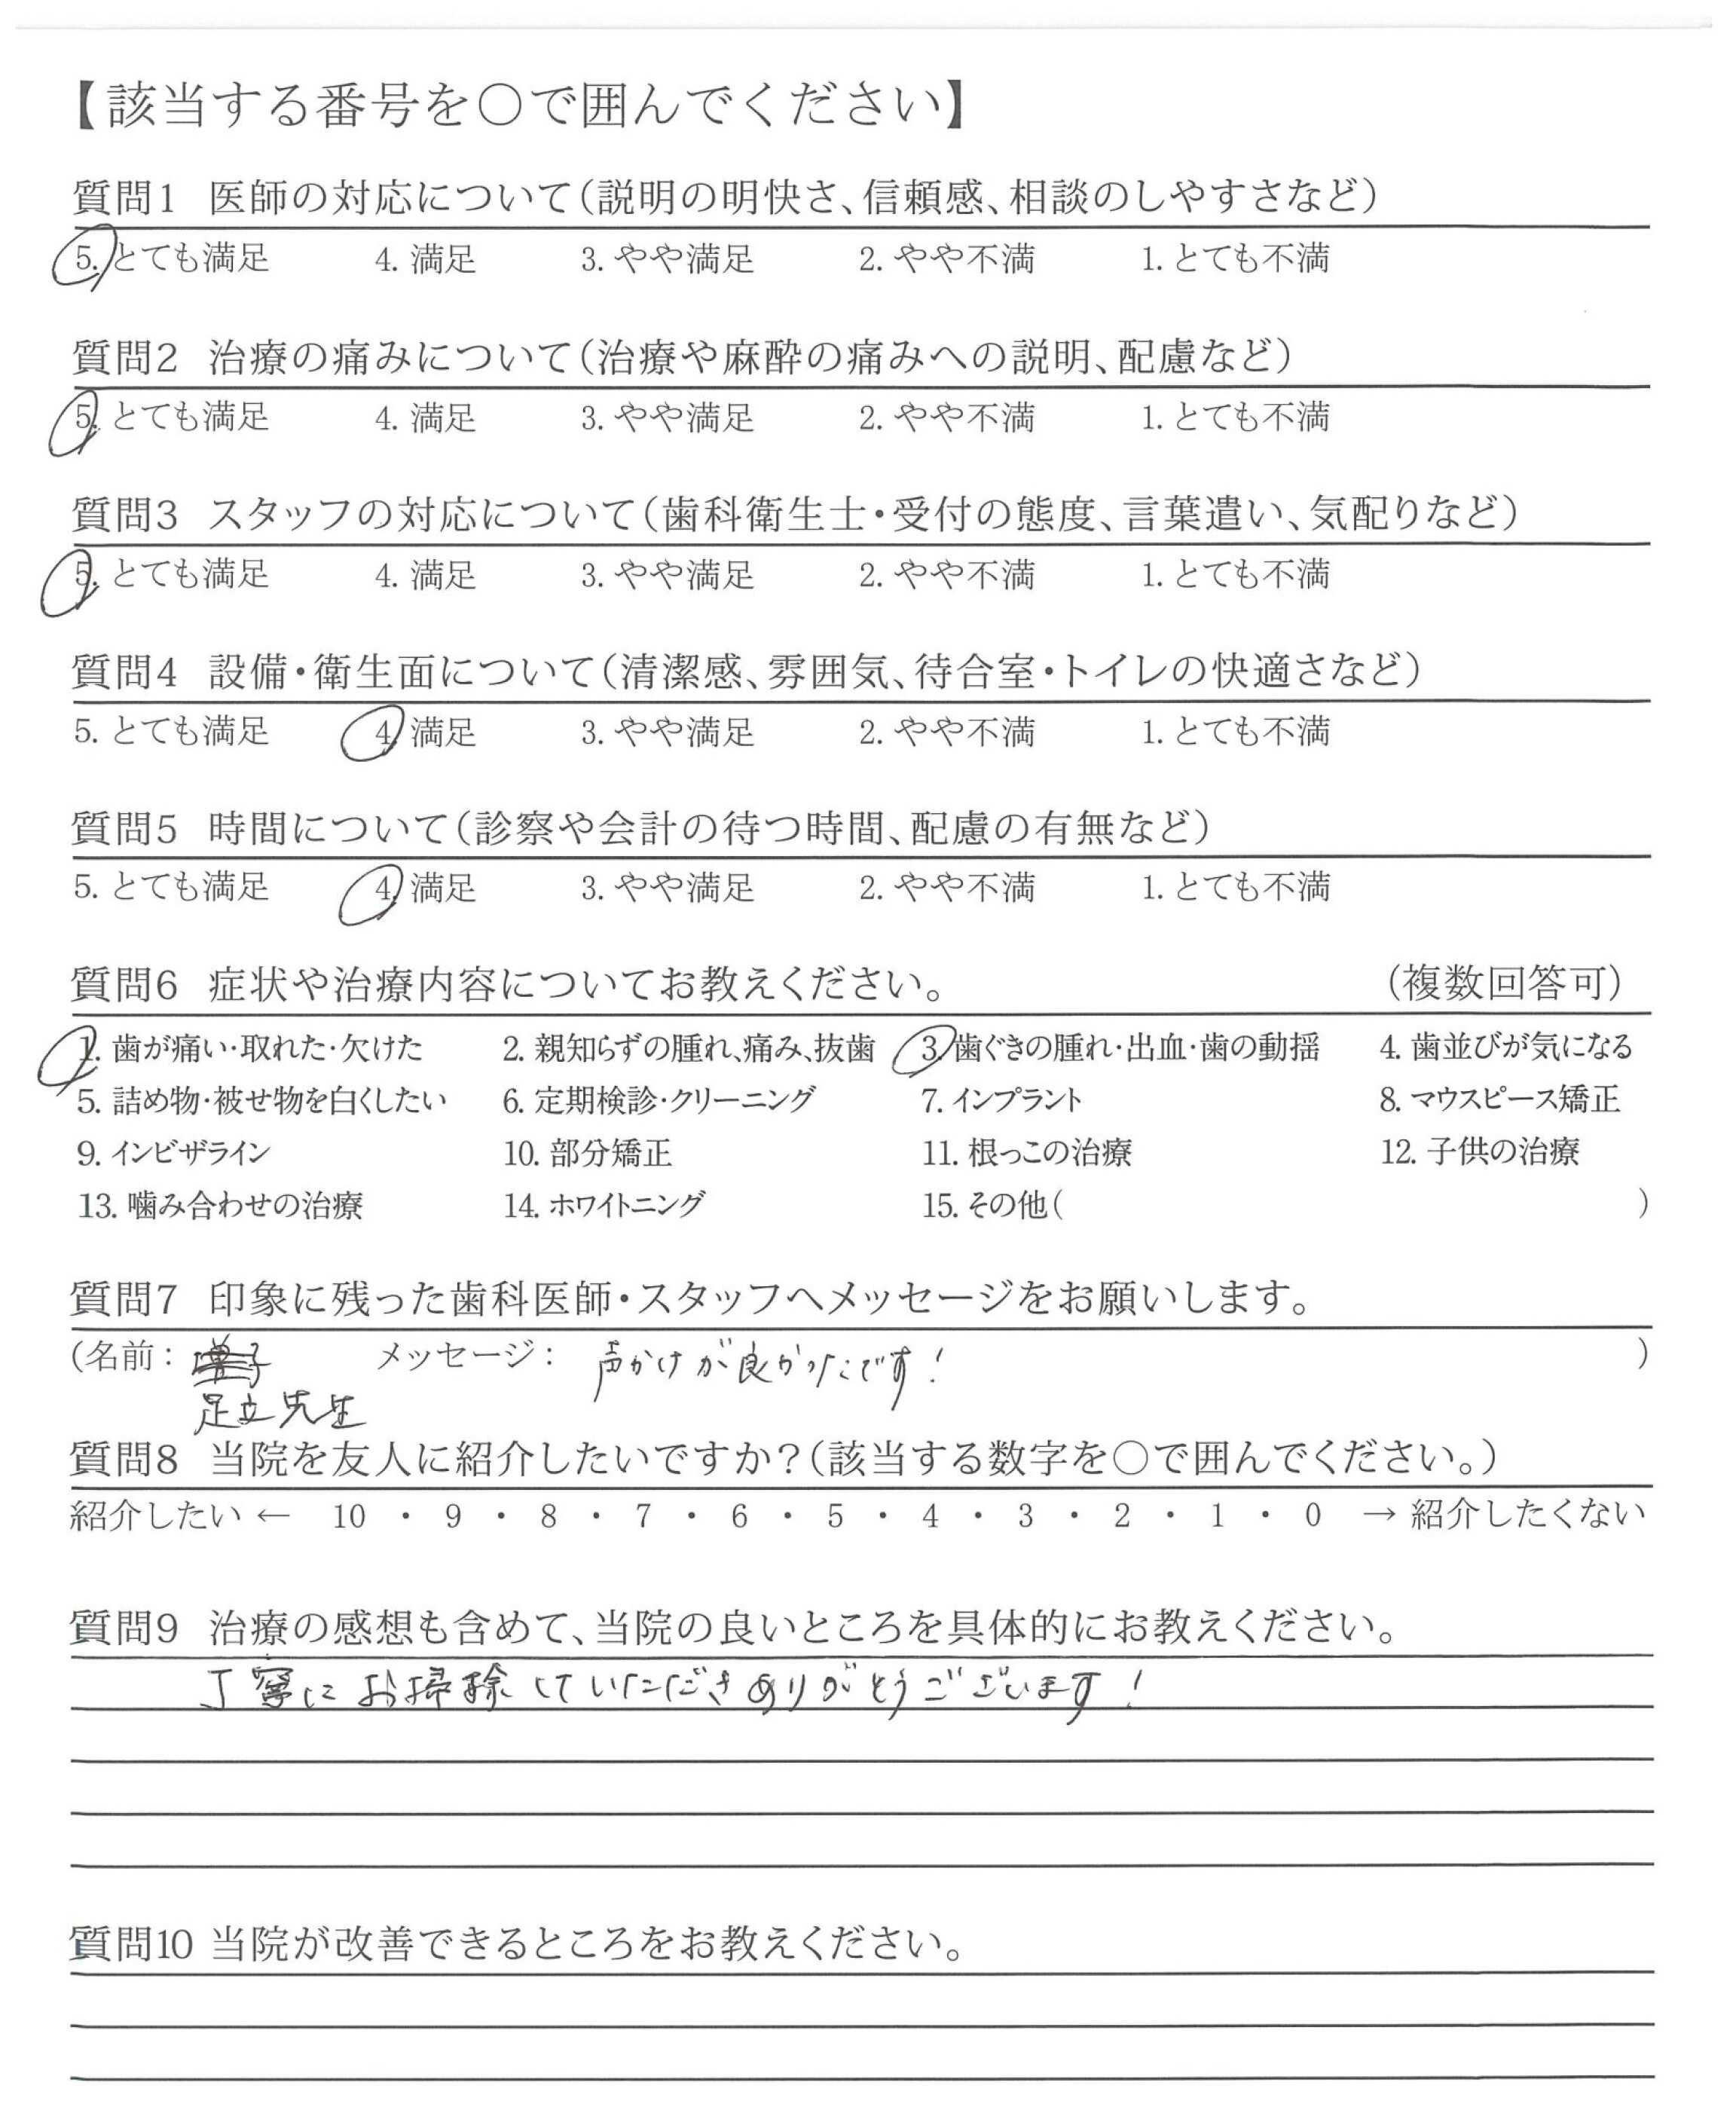 【該当する番号を○で囲んでください】
質問1 医師の対応について(説明の明快さ、信頼感、相談のしやすさなど)
5. とても満足 4. 満足 3. やや満足 2. やや不満 1. とても不満
質問2 治療の痛みについて(治療や麻酔の痛みへの説明、配慮など)
5. とても満足 4. 満足 3. やや満足 2. やや不満 1. とても不満
質問3 スタッフの対応について(歯科衛生士・受付の態度、言葉遣い、気配りなど)
5. とても満足 4. 満足 3. やや満足 2. やや不満 1. とても不満
質問4 設備・衛生面について(清潔感、雰囲気、待合室・トイレの快適さなど)
5. とても満足 4. 満足 3. やや満足 2. やや不満 1. とても不満
質問5 時間について(診察や会計の待つ時間、配慮の有無など)
5. とても満足 4. 満足 3. やや満足 2. やや不満 1. とても不満
質問6 症状や治療内容についてお教えください。 (複数回答可)
1. 歯が痛い・取れた・欠けた 2. 親知らずの腫れ、痛み、抜歯 3. 歯ぐきの腫れ・出血・歯の動揺 4. 歯並びが気になる
5. 詰め物・被せ物を白くしたい 6. 定期検診・クリーニング 7. インプラント 8. マウスピース矯正
9. インビザライン 10. 部分矯正 11. 根っこの治療 12. 子供の治療
13. 噛み合わせの治療 14. ホワイトニング 15. その他( )
質問7 印象に残った歯科医師・スタッフへメッセージをお願いします。
(名前: メッセージ: 声かけが良かったです! )
足立先生
質問8 当院を友人に紹介したいですか?(該当する数字を○で囲んでください。)
紹介したい ← 10 ・ 9 ・ 8 ・ 7 ・ 6 ・ 5 ・ 4 ・ 3 ・ 2 ・ 1 ・ 0 → 紹介したくない
質問9 治療の感想も含めて、当院の良いところを具体的にお教えください。
丁寧にお掃除していただきありがとうございます!
質問10 当院が改善できるところをお教えください。